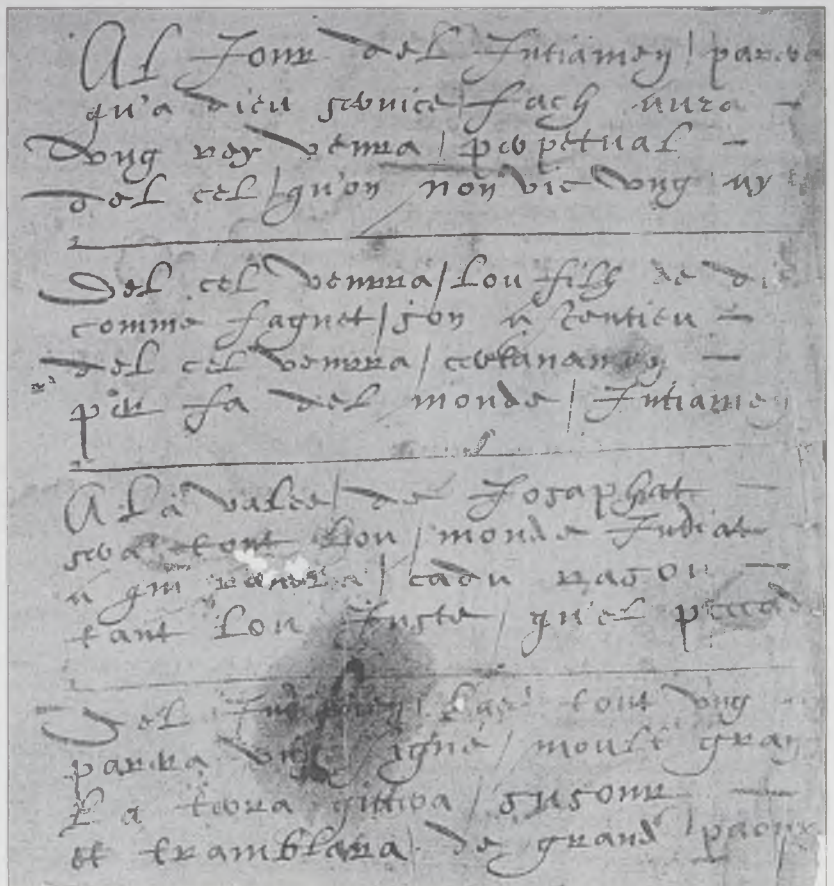 Al Jour del Jutiamen / parera
qu'a dieu service / fach aura
Dung rey venra / perpetual
del cel / qu'on non vic ung
Del cel venrra / Lou filh de
comme fagnet / son
del cel venrra / certanamen
per fa del monde / Jutiamen
A La valee / de Josaphat
sera tout Lou / monde Judiat
a qui randra / cadu rason
tant Lou Juste / qu'el
Del tout ung
parra ung signe / moult gran
La terra gittera / susour
et tramblara de grand paour